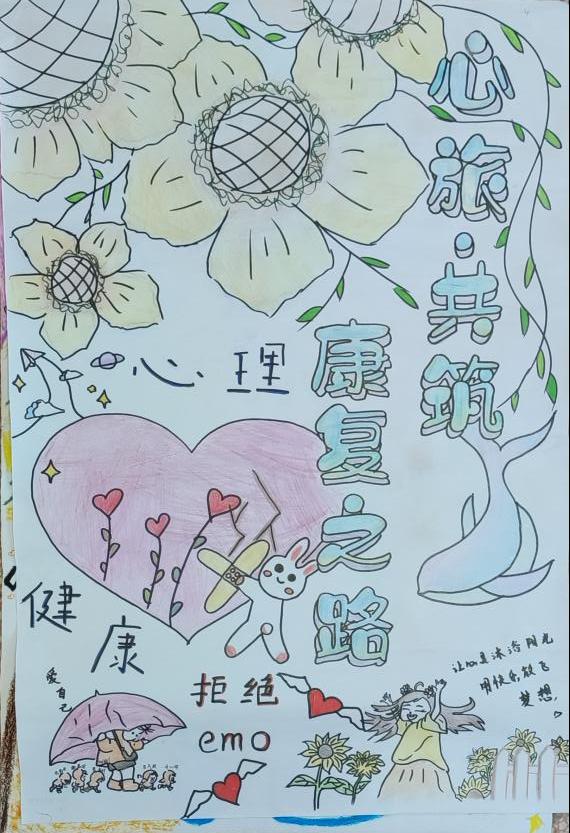 心旅·共筑
康复之路
心理
健康
爱自己
拒绝
emo
让心灵沐浴阳光
用快乐放飞
梦想